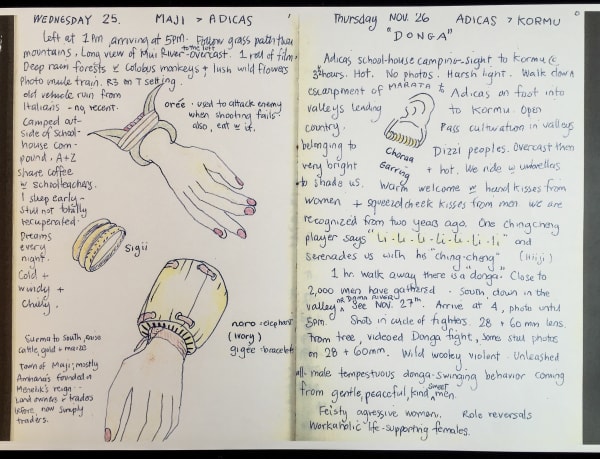 WEDNESDAY 25. MAJI > ADICAS
Left at 1 PM, arriving at 5PM. Follow grass path thru
mountains. Long view of Mui River to the left - overcast. 1 red of film.
Deep rain forests w Colobus monkeys + lush wild flowers
Photo mule train. R3 on T setting.
old vehicle run from
Italians - no, recent.
Camped out-
side of school-
house com-
pound. A+Z
Share coffee
w schoolteachers.
I sleep early -
still not totally
recuperated.
Dreams
every
night.
Cold +
windy +
Chilly.
oreé - used to attack enemy
when shooting fails.
also, eat w it.
Sigii
Surma to South, raise
cattle, gold + maize
Town of Maji; mostly
Amharas founded in
Menelik's reign -
Land owners + traders
before, now simply
traders.
noro = elephant
(Ivory)
gigée = bracelet
Thursday NOV. 26 ADICAS > KORMU
"DONGA"
Adicas school-house camping-sight to Kormu @
3 1/2 hours. Hot. No photos. Harsh light. Walk down
escarpment of MARATA to Adicas on foot into
valleys leading to Kormu. Open
country. Pass cultivation in valleys
belonging to Dizzi peoples. Overcast then
very bright + hot. We ride w umbrellas
to shade us. Warm welcome w hand kisses from
women + squeezed cheek kisses from men we are
recognized from two years ago. One Ching cheng
player says "Li-Li-Li-Li-Li-Li-Li" and
serenades us with his "ching-cheng" (Iiiji)
Choraa
Earring
1 hr. walk away there is a "donga." Close to
2,000 men have gathered - South, down in the
valley or DOMA RIVER, See NOV. 27th. Arrive at 4, photo until
5pm. Shots in circle of fighters. 28 + 60 mm lens.
From tree, videoed Donga fight, some still photos
on 28 + 60mm. Wild wooley violent. Unleashed
all male tempestuous donga-swinging behavior coming
from gentle, peaceful, kind, sweet men.
Feisty agressive women. Role reversals
Workaholic life-supporting females.